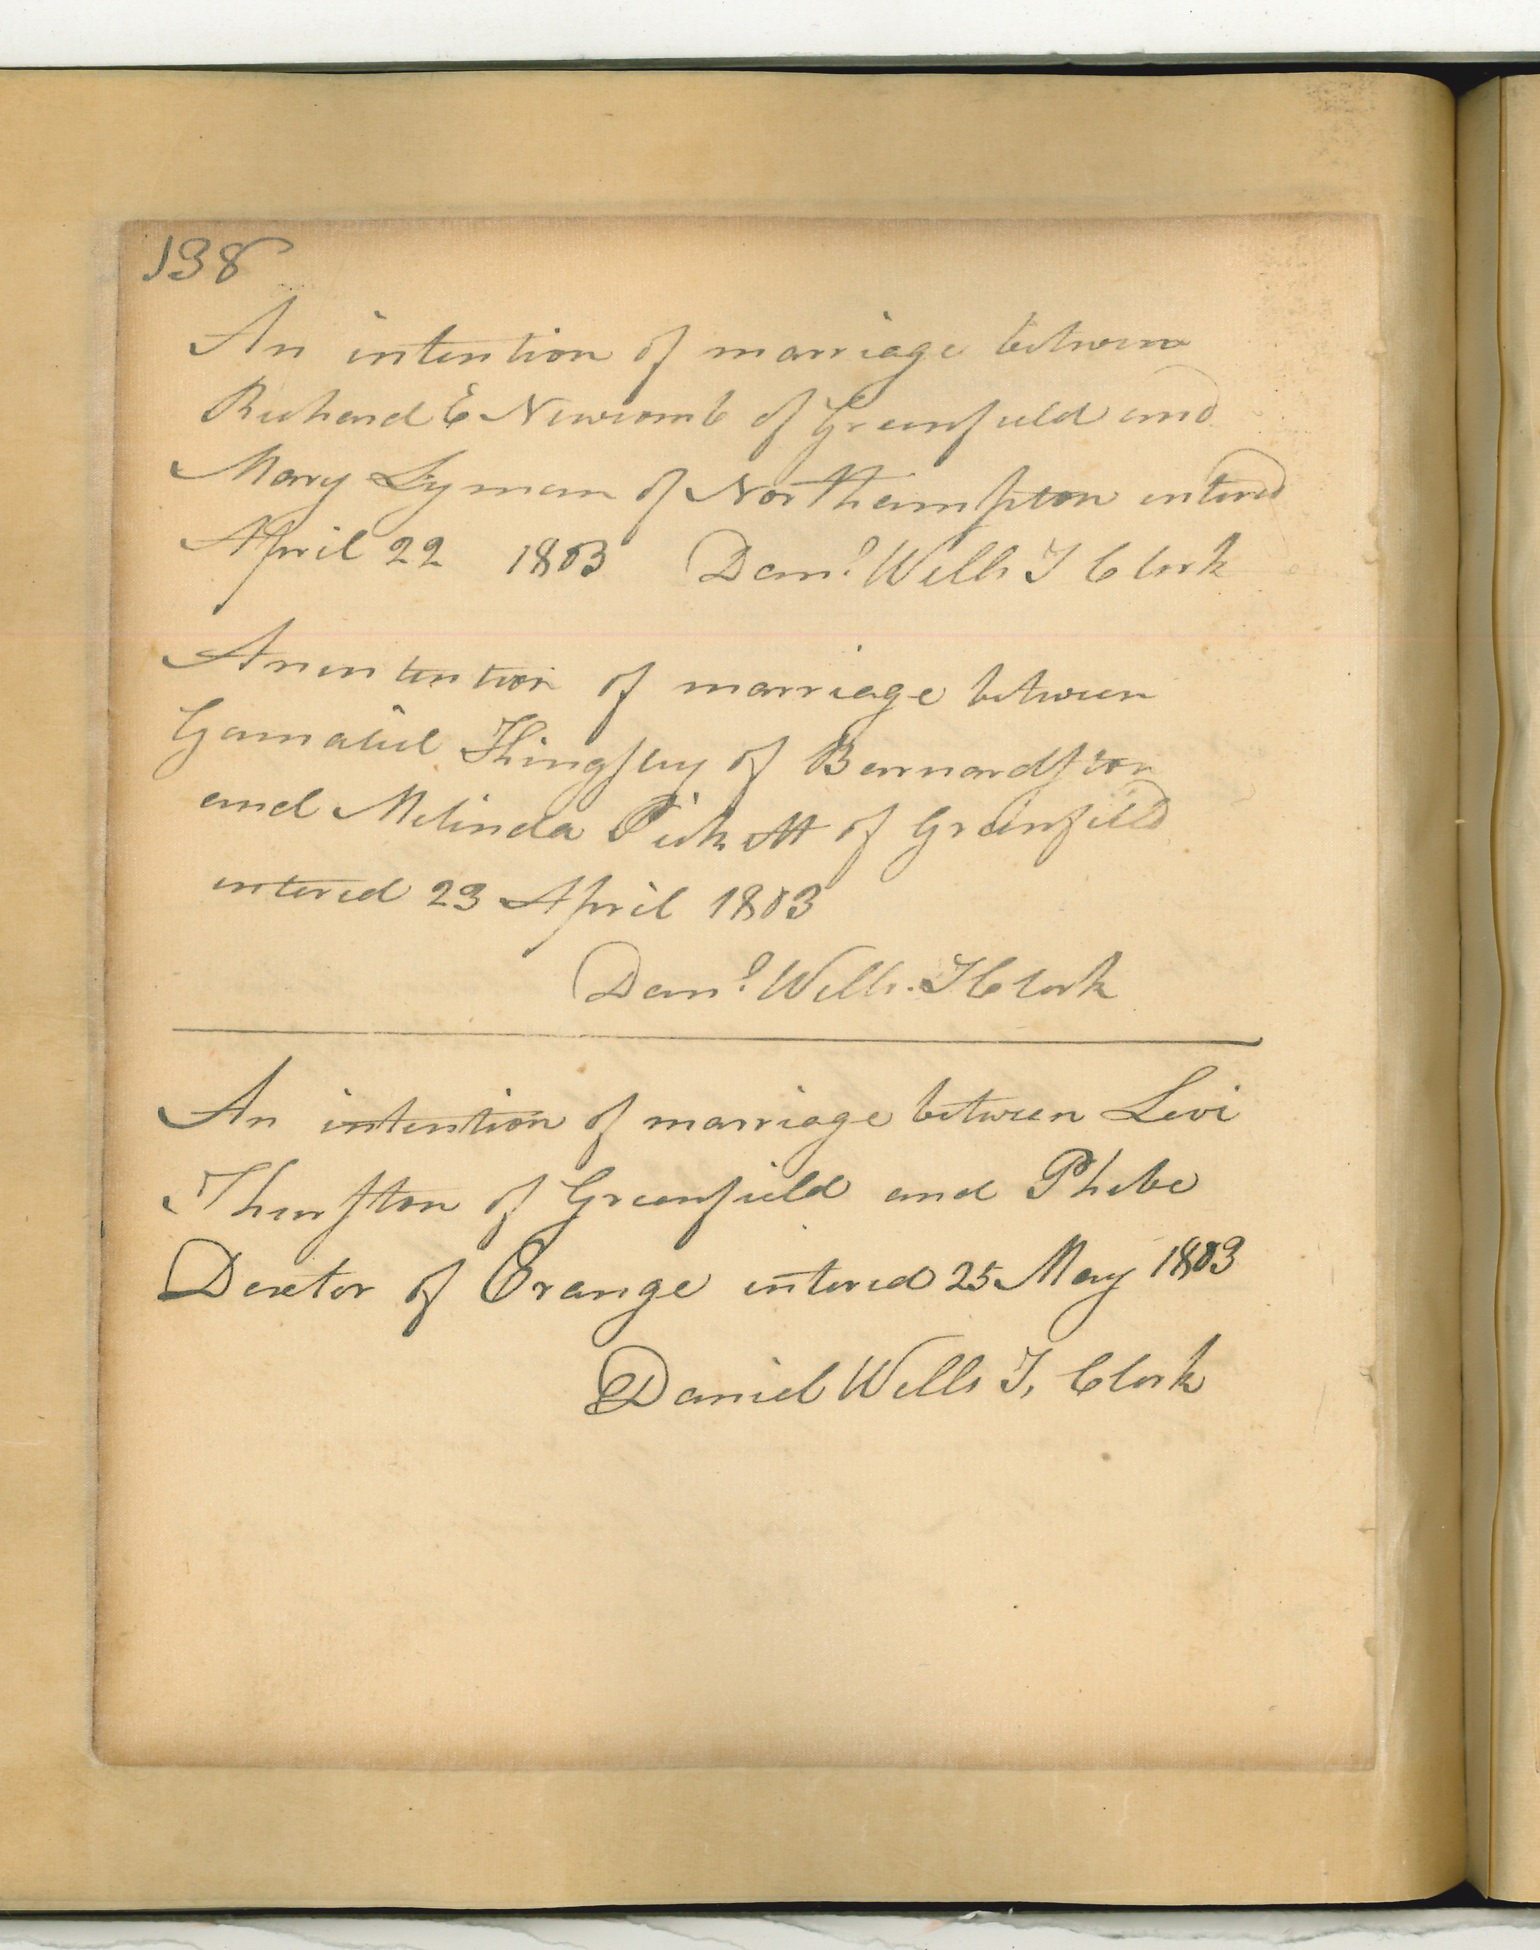 138
An intention of marriage between
Richard E Newcomb of Greenfield and
Mary Lyman of Northampton entered
April 22 1803 Danl Wells T Clerk
An intention of marriage between
Gamaliel Kingsley of Bernardston
and Melinda Pickett of Greenfield
entered 23 April 1803
Danl Wells T Clerk
An intention of marriage between Levi
Thurston of Greenfield and Phebe
Dexter of Orange entered 25 May 1803
Daniel Wells T, Clerk